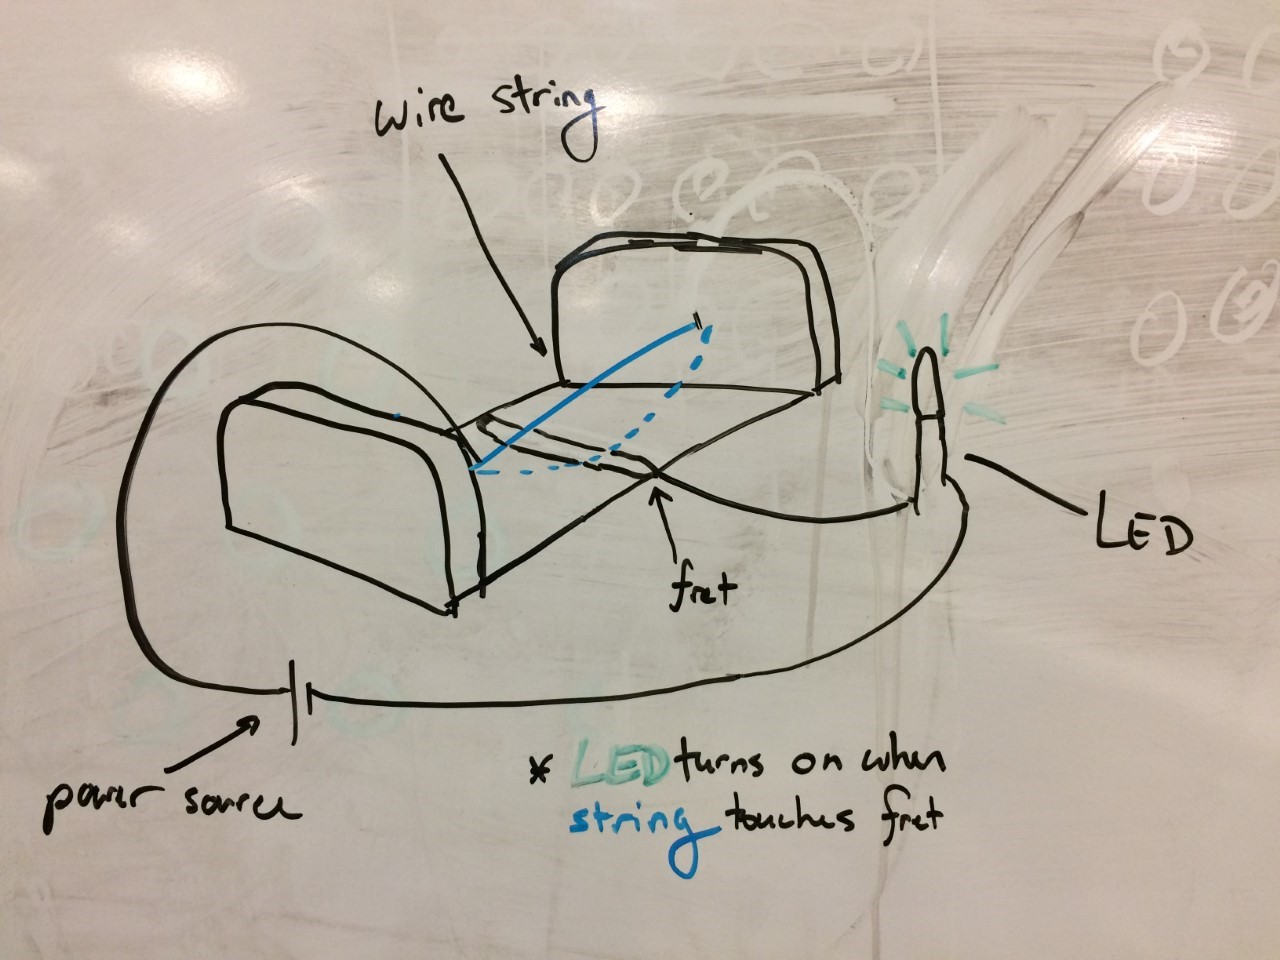 wire string
LED
fret
power source
* LED turns on when
string touches fret